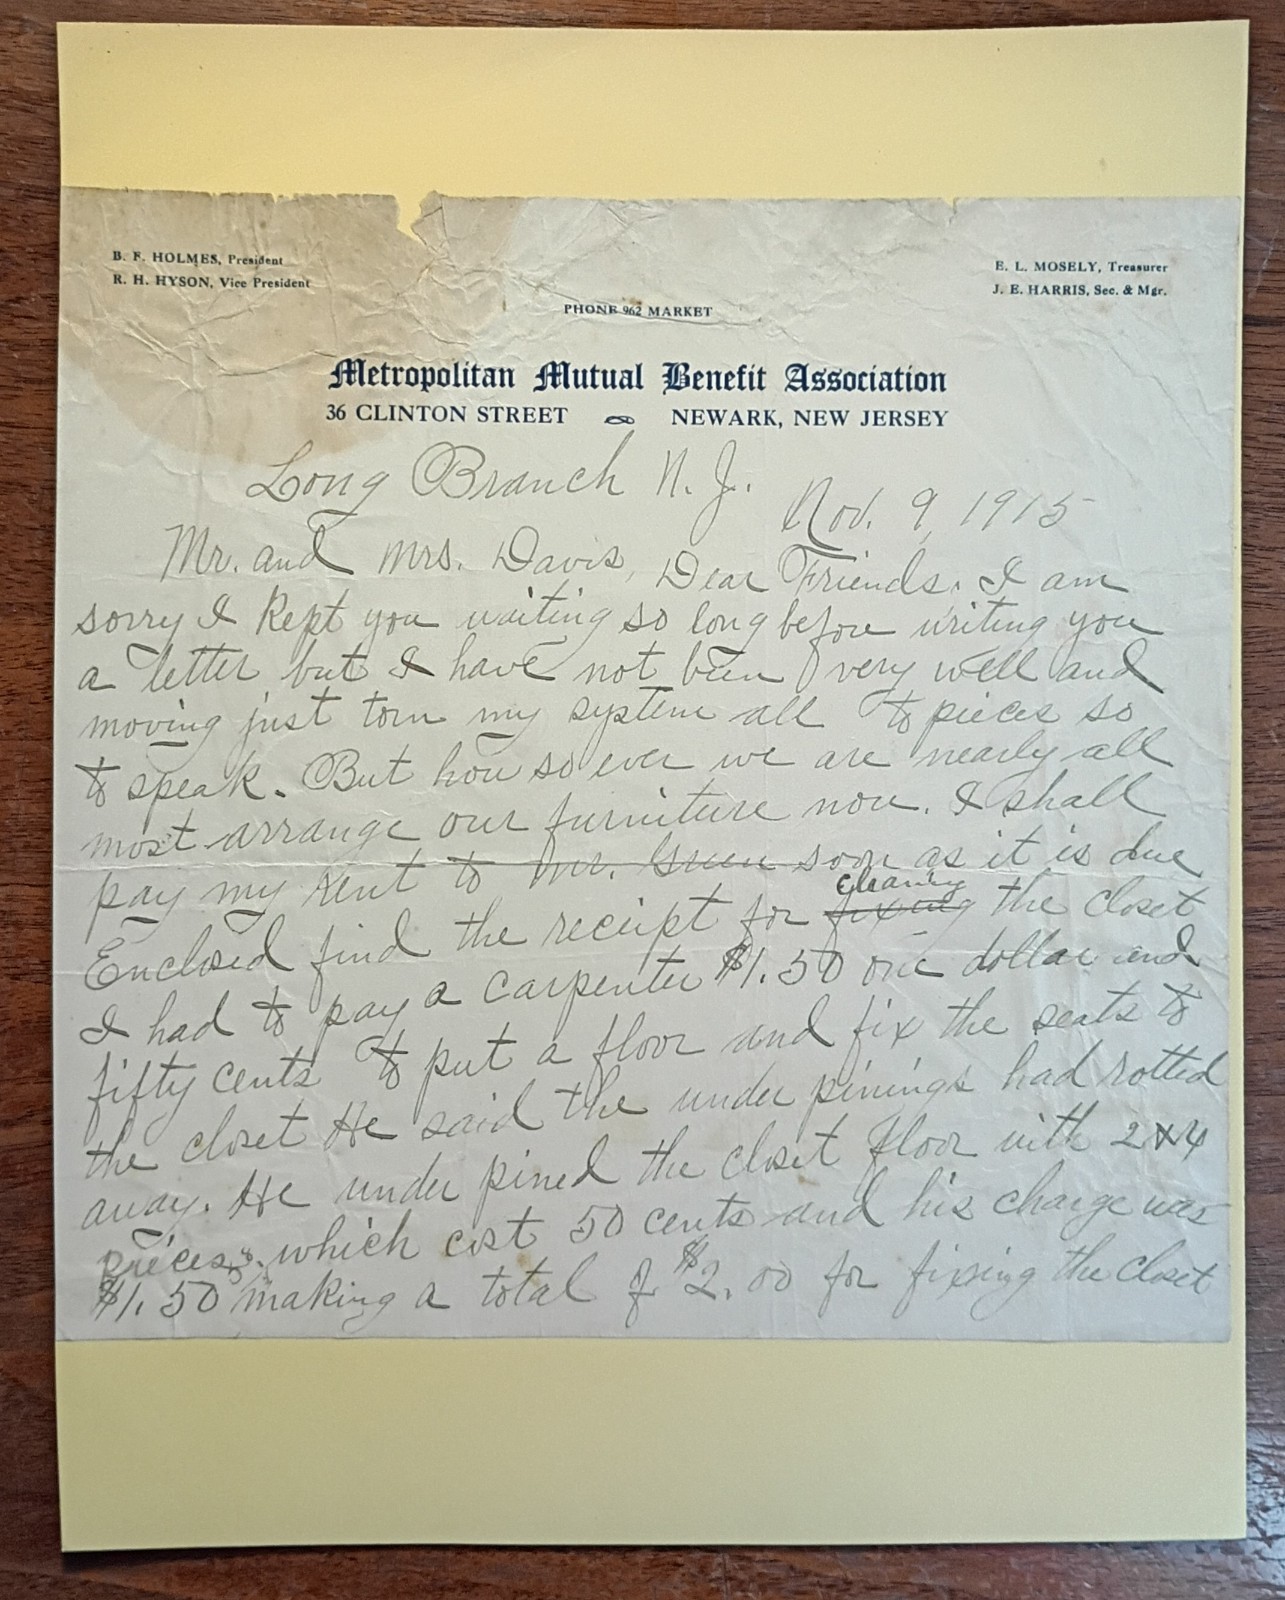 B. F. HOLMES, President
R. H. HYSON, Vice President
E. L. MOSELY, Treasurer
J. E. HARRIS, Sec. & Mgr.
PHONE 962 MARKET
Metropolitan Mutual Benefit Association
36 CLINTON STREET NEWARK, NEW JERSEY
Long Branch N. J.
Nov. 9, 1915
Mr. and Mrs. Davis, Dear Friends. I am
sorry I kept you waiting so long before writing you
a letter but I have not been very well and
moving just torn my system all to pieces so
to speak. But how so ever we are nearly all
most arrange our furniture now. I shall
pay my rent to Mr. Green soon as it is due
Enclosed find the receipt for fixing cleaning the closet
I had to pay a carpenter $1.50 one dollar and
fifty cents to put a floor and fix the seats to
the closet He said the under pinings had rotted
away. He under pined the closet floor with 2x4
pieces. which cost 50 cents and his charge was
$1.50 making a total of $2.00 for fixing the closet